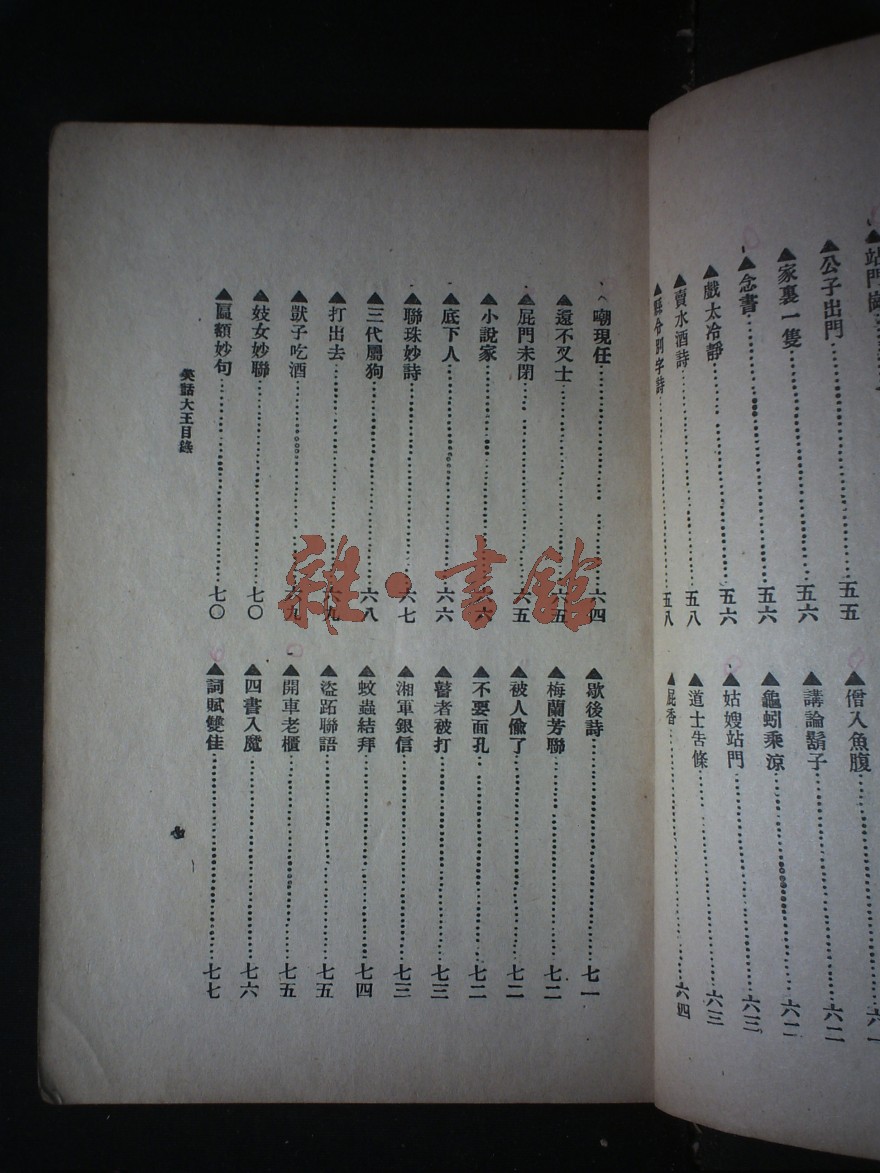 ▲公子出門……五五
▲家裏一隻……五六
▲念書……五六
▲戲太冷靜……五六
▲賣水酒詩……五八
縣令別字詩……五八
僧入魚腹……六一
▲講論鬍子……六二
▲龜蚓乘涼……六二
▲姑嫂站門……六三
▲道士告條……六三
▲屁香……六四
嘲現任……六四
▲還不叉士……六五
▲屁門未閉……六五
▲小說家……六六
▲底下人……六六
▲聯珠妙詩……六七
▲三代屬狗……六八
▲打出去……六九
▲獃子吃酒……六九
▲妓女妙聯……七〇
▲匾額妙句……七〇
▲歇後詩……七一
▲梅蘭芳聯……七二
▲被人偷了……七二
▲不要面孔……七二
▲瞽者被打……七三
▲湘軍銀信……七三
▲蚊蟲結拜……七四
▲盜跖聯語……七五
▲開車老櫃……七五
▲四書入魔……七六
▲詞賦雙佳……七七
笑話大王目錄
七
雜·書館